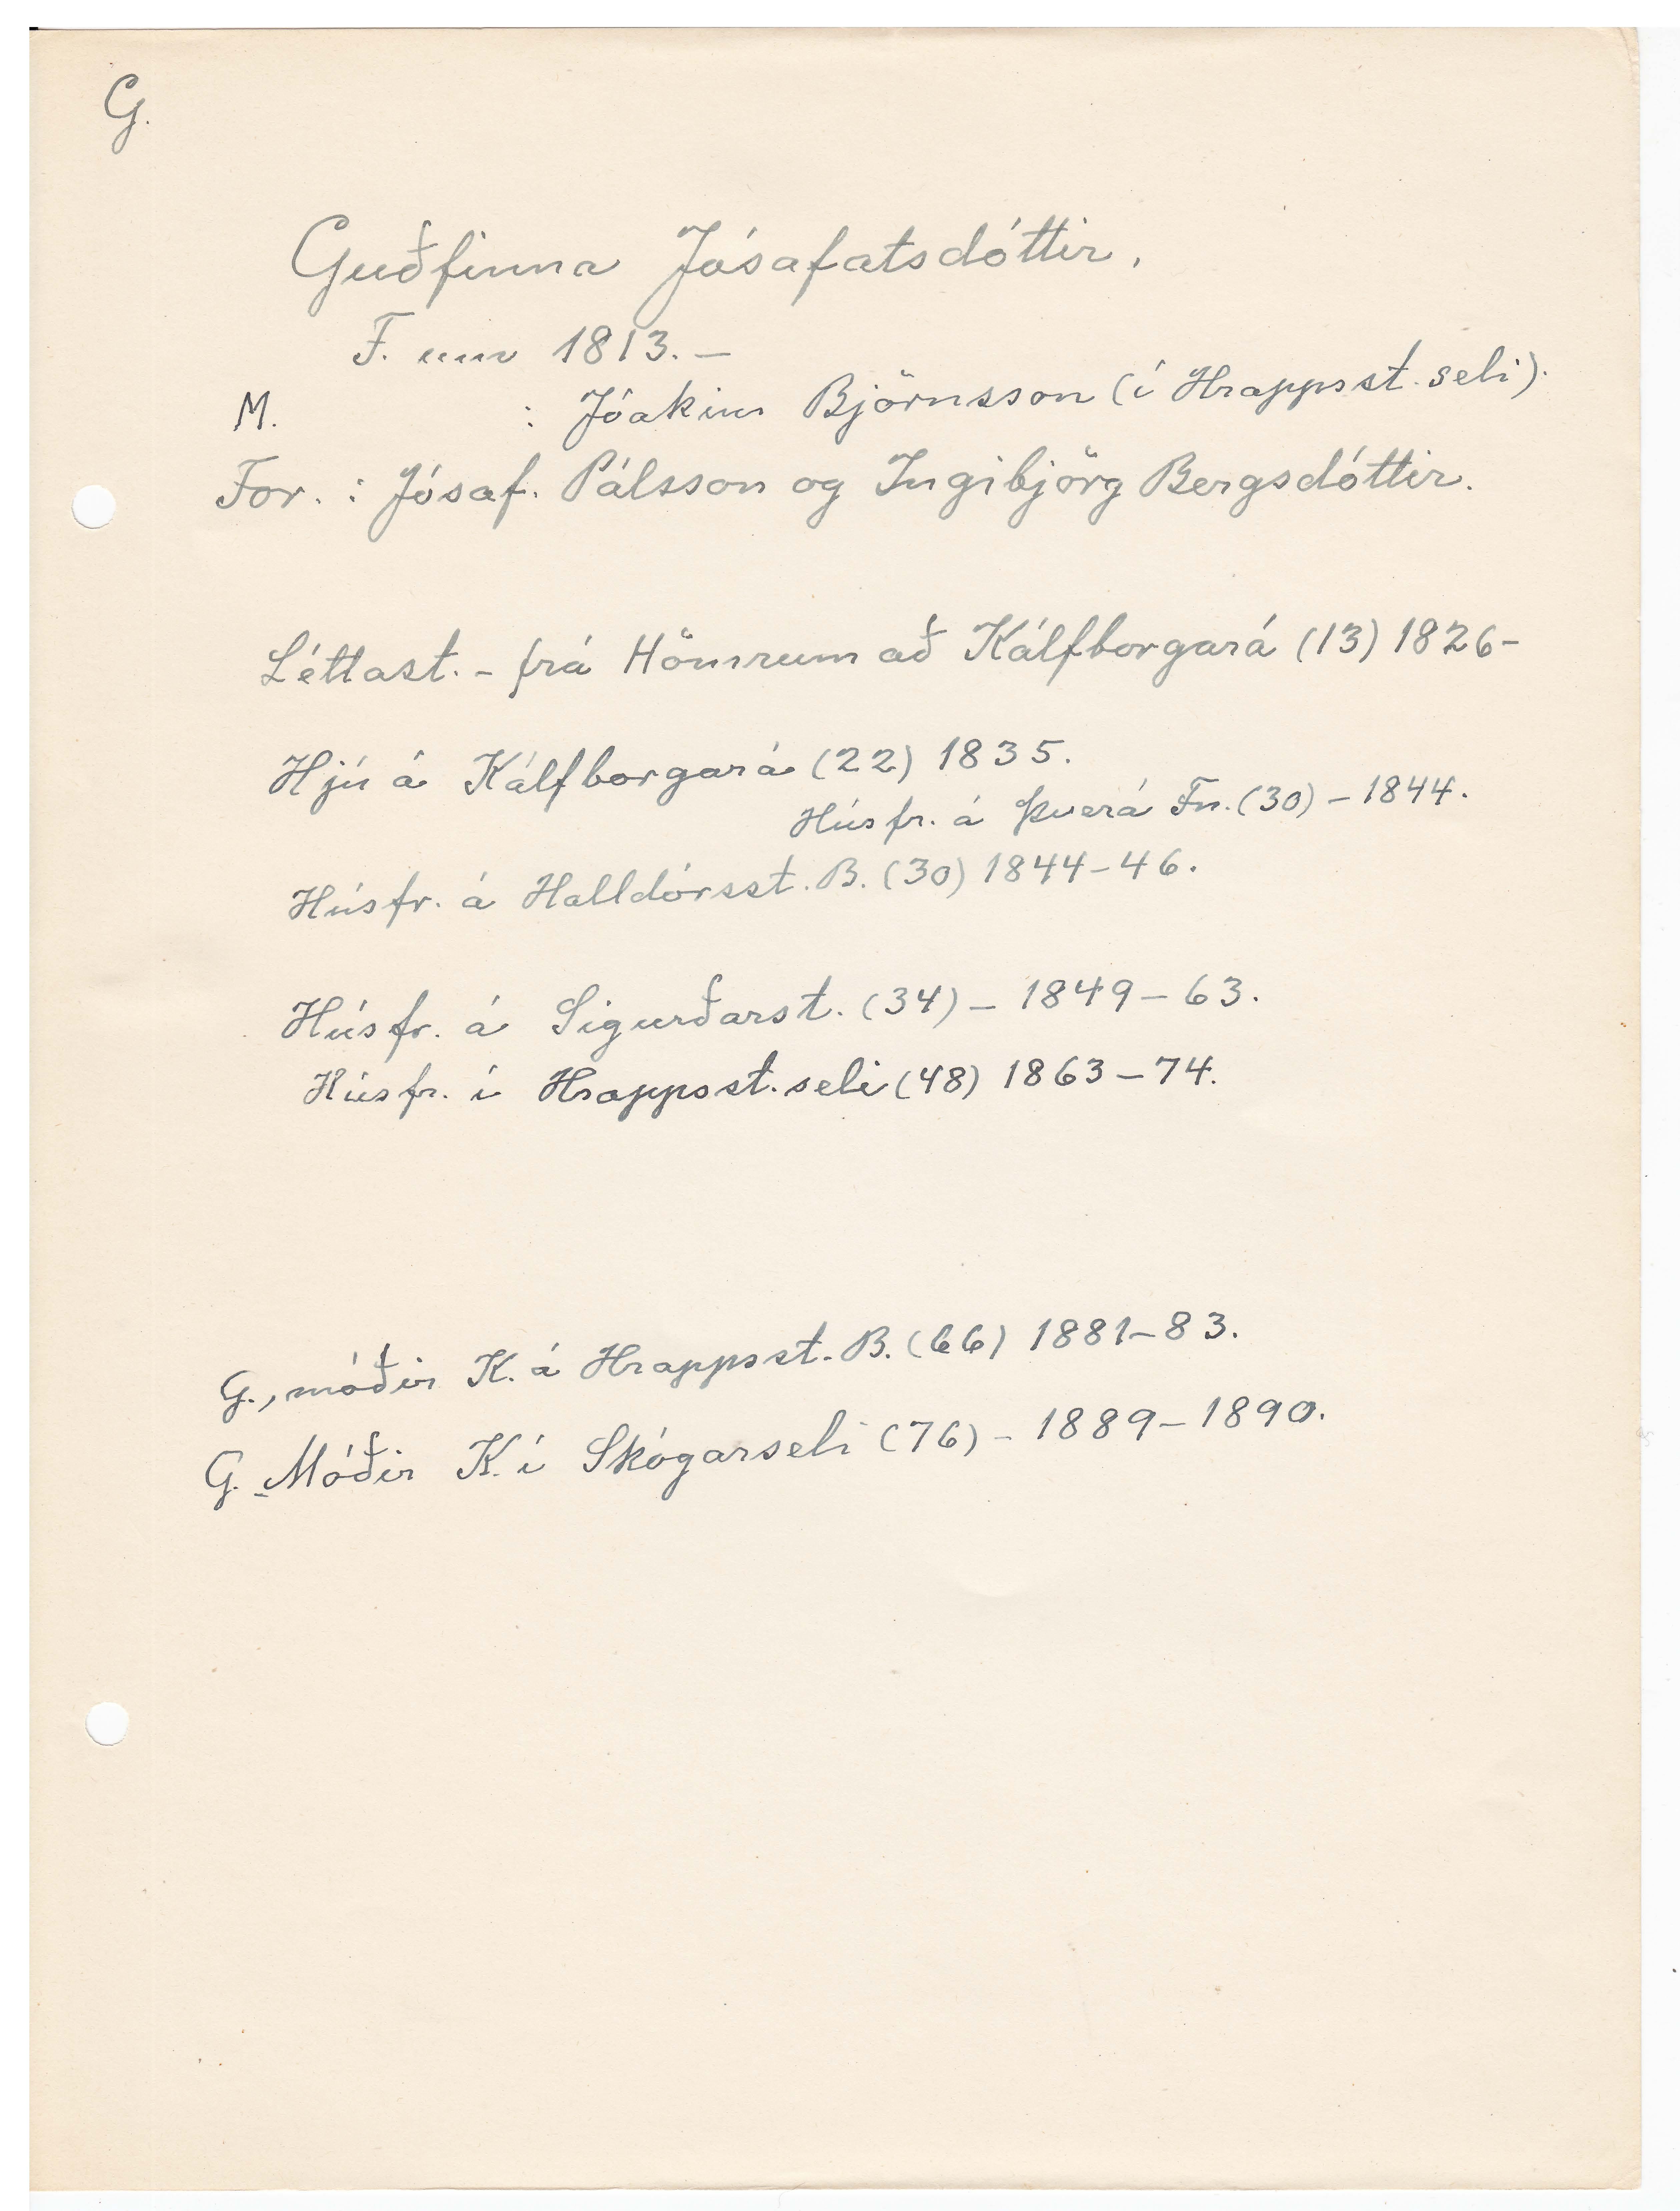 G.
Guðfinna Jósafatsdóttir.
F. um 1813. –
M. : Jóakim Björnsson (í Hrappsst. seli).
For. : Jósaf. Pálsson og Ingibjörg Bergsdóttir.
Léttast. - frá Hömrum að Kálfborgará (13) 1826-
Hjú á Kálfborgará (22) 1835.
Húsfr. á Þverá Fn. (30) – 1844.
Húsfr. á Halldórsst. B. (30) 1844-46.
Húsfr. á Sigurðarst. (34) – 1849 – 63.
Húsfr. í Hrappsst. seli (48) 1863 – 74.
G., móðir K. á Hrappsst. B. (66) 1881-83.
G. - Móðir K. í Skógarseli (76) - 1889-1890.